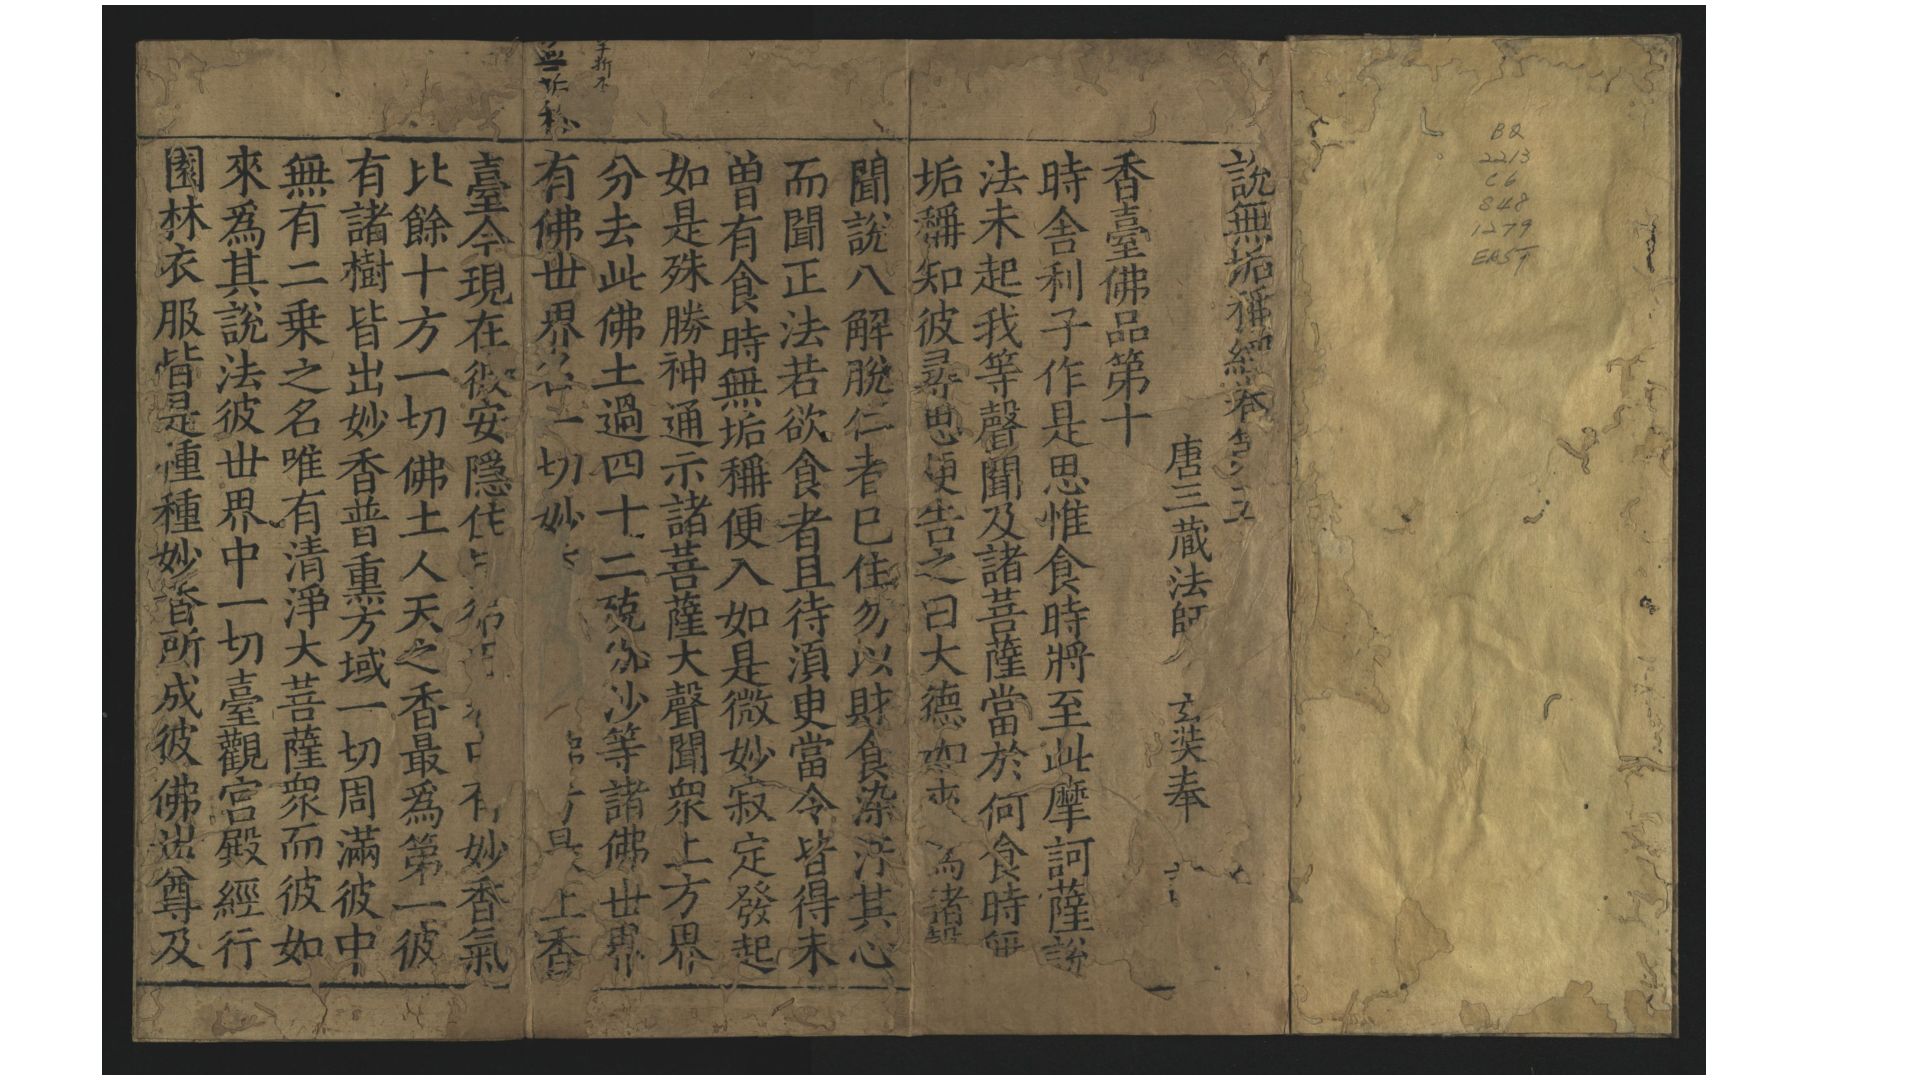 BQ
2213
C6
S48
1279
EAST
說無垢稱經卷第五
唐三藏法師玄奘奉
香臺佛品第十
時舍利子作是思惟食時將至此摩訶薩說
法未起我等聲聞及諸菩薩當於何食時無
垢稱知彼尋思便告之曰大德如來為諸聲
聞說八解脫仁者已住勿以財食染汙其心
而聞正法若欲食者且待湏臾當令皆得未
曾有食時無垢稱便入如是微妙寂定發起
如是殊勝神通示諸菩薩大聲聞眾上方界
分去此佛土過四十二殑伽沙等諸佛世界
有佛世界名一切妙上香
臺今現在彼安隱住中有妙香氣
比餘十方一切佛土人天之香最為第一彼
有諸樹皆出妙香普熏方域一切周滿彼中
無有二乗之名唯有清淨大菩薩眾而彼如
來為其說法彼世界中一切臺觀宮殿經行
園林衣服皆是種種妙香所成彼佛世尊及